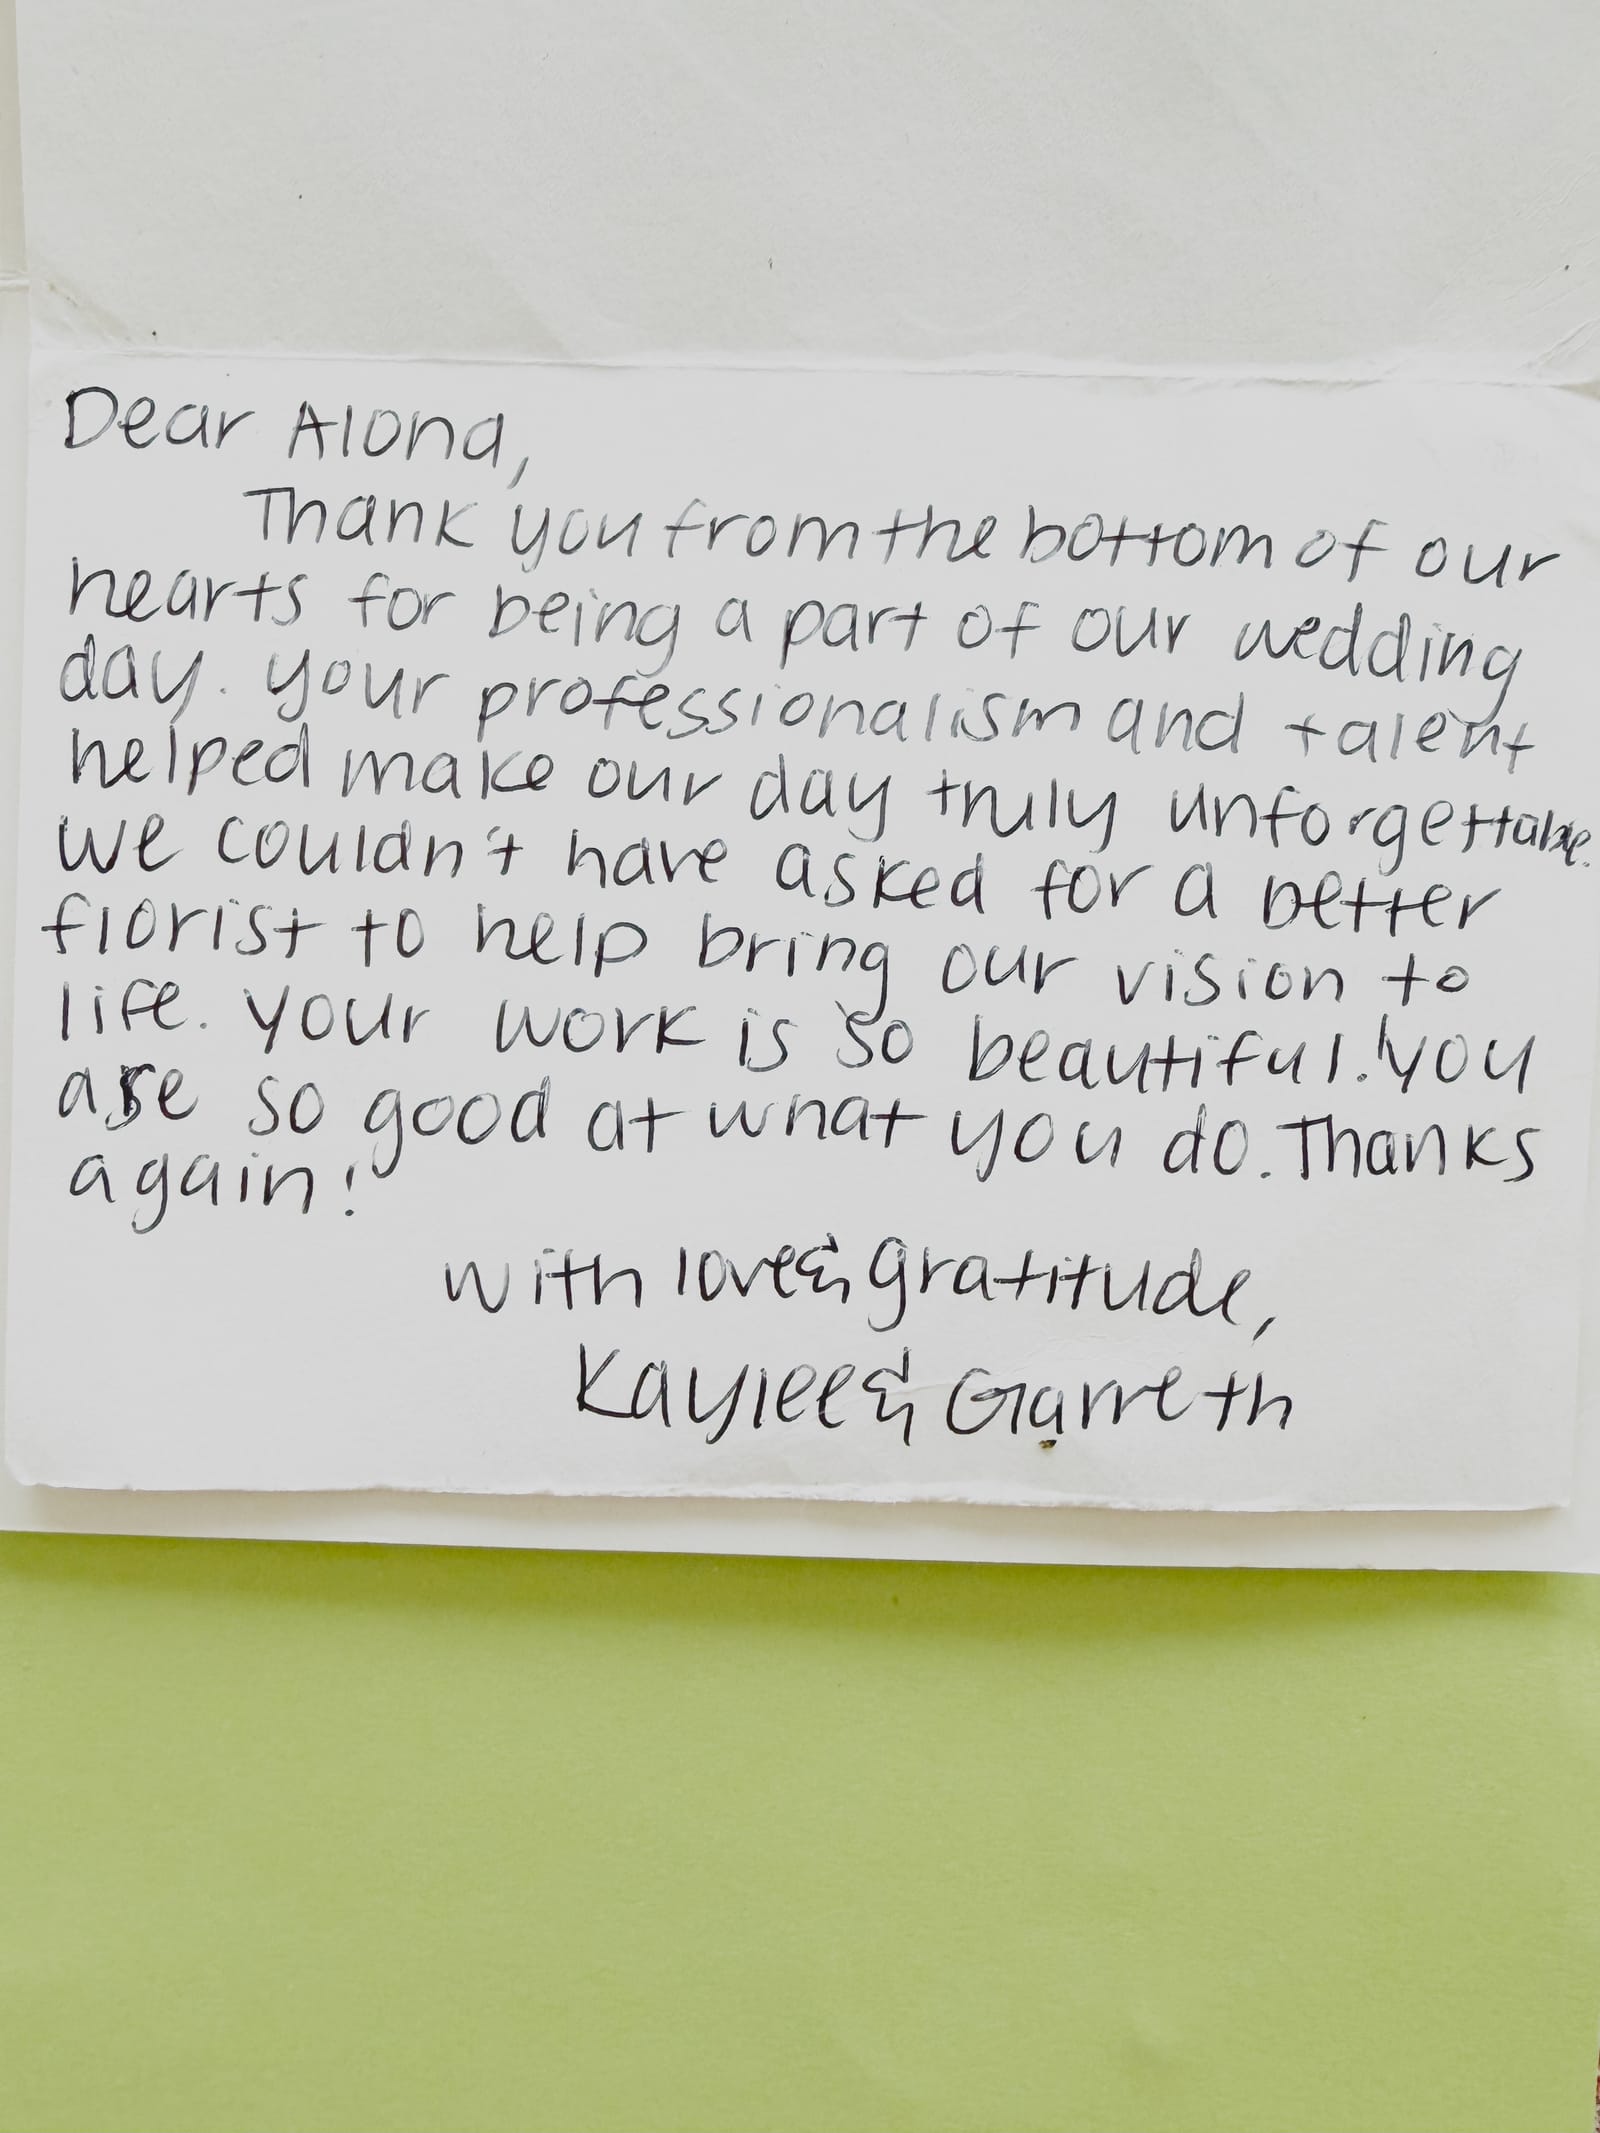 Dear Alona,
Thank you from the bottom of our
hearts for being a part of our wedding
day. Your professionalism and talent
helped make our day truly unforgettable.
We couldn't have asked for a better
florist to help bring our vision to
life. Your work is so beautiful! You
are so good at what you do. Thanks
again!
With love & gratitude,
Kaylee & Garreth